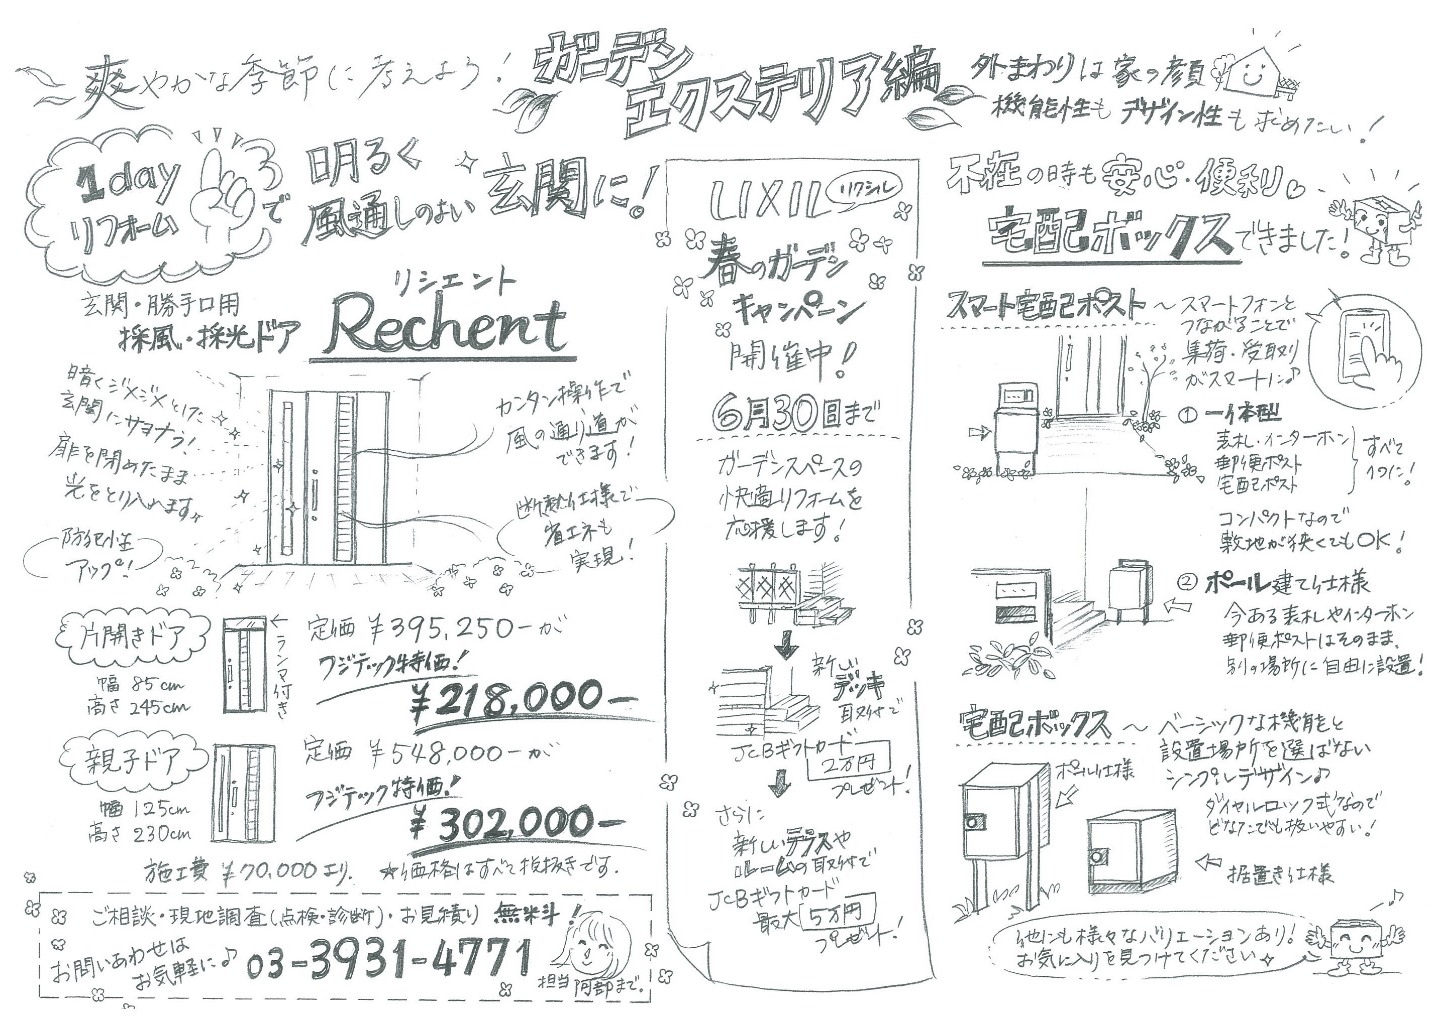 爽やかな季節に考えよう!
ガーデン
エクステリア編
外まわりは家の顔
機能性もデザイン性も求めたい!
1day
リフォーム
で
明るく
風通しのよい
玄関に!
玄関・勝手口用
採風・採光ドア
リシェント
Rechent
暗くジメジメとした
玄関にサヨナラ!
扉を閉めたまま
光をとり入れます
防犯性
アップ!
カンタン操作で
風の通り道が
できます!
断熱仕様で
省エネも
実現!
片開きドア
幅 85cm
高さ 245cm
ランマ付き
定価 ¥395,250-が
フジテック特価!
¥218,000-
親子ドア
幅 125cm
高さ 230cm
定価 ¥548,000-が
フジテック特価!
¥302,000-
施工費 ¥70,000より. ☆価格はすべて税抜きです.
ご相談・現地調査(点検・診断)・お見積り 無料!
お問いあわせは
お気軽に♪
03-3931-4771
担当 阿部まで.
LIXIL
リクシル
春のガーデン
キャンペーン
開催中!
6月30日まで
ガーデンスペースの
快適リフォームを
応援します!
新しい
デッキ
取付で
JCBギフトカード
2万円
プレゼント!
さらに
新しいテラスや
ルームの取付で
JCBギフトカード
最大 5万円
プレゼント!
不在の時も安心・便利♡
宅配ボックスできました!
スマート宅配ポスト〜
スマートフォンと
つながることで
集荷・受取り
がスマートに♪
① 一体型
表札・インターホン
郵便ポスト
宅配ポスト
すべて
1つに!
コンパクトなので
敷地が狭くてもOK!
② ポール建て仕様
今ある表札やインターホン
郵便ポストはそのまま、
別の場所に自由に設置!
宅配ボックス〜
ベーシックな機能と
設置場所を選ばない
シンプルデザイン♪
ポール仕様
ダイヤルロック式なので
どなたでも扱いやすい!
据置き仕様
他にも様々なバリエーションあり!
お気に入りを見つけてください